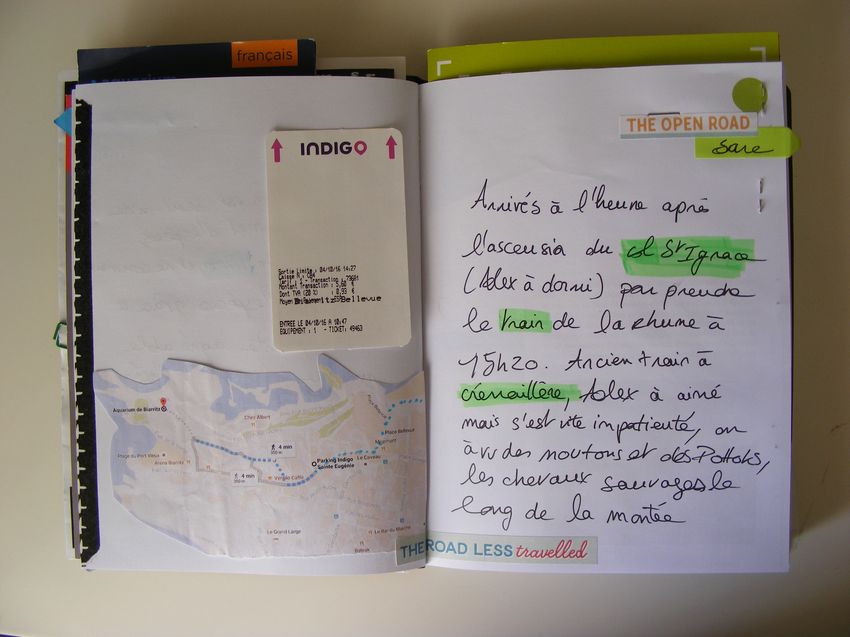 français
INDIGO
Sortie Limite : 04/10/16 14:27
Montant Transaction : 5,60 €
Dont TVA (20 %) : 0,93 €
Bellevue
ENTREE LE 04/10/16 A 10:47
EQUIPEMENT : 1 - TICKET: 49463
Aquarium de Biarritz
Chez Albert
Place Bellevue
4 min
350 m
Plage du Port Vieux
Arena Biarritz
Parking Indigo
Sainte Eugénie
Le Caveau
4 min
Vergio Caffe
Le Grand Large
Le Bar du Marché
THE ROAD LESS travelled
THE OPEN ROAD
Sare
Arrivés à l'heure après
l'ascensia du col St Ignace
(Alex à dormi) par prendre
le train de la Rhune à
15h20. Ancien train à
crémaillère, Alex à aimé
mais s'est vite impatienté, on
à vu des moutons et des Pottoks,
les chevaux sauvages le
long de la montée